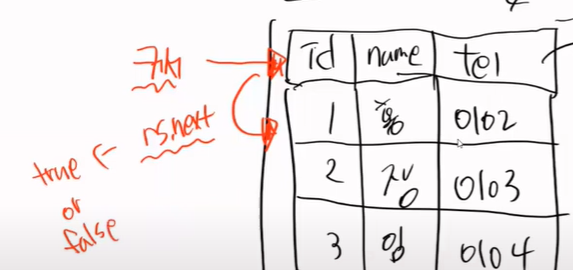 커서 id name tel
rs.next 1 홍 0102
true ← 2 장 0103
or
false 3 임 0104